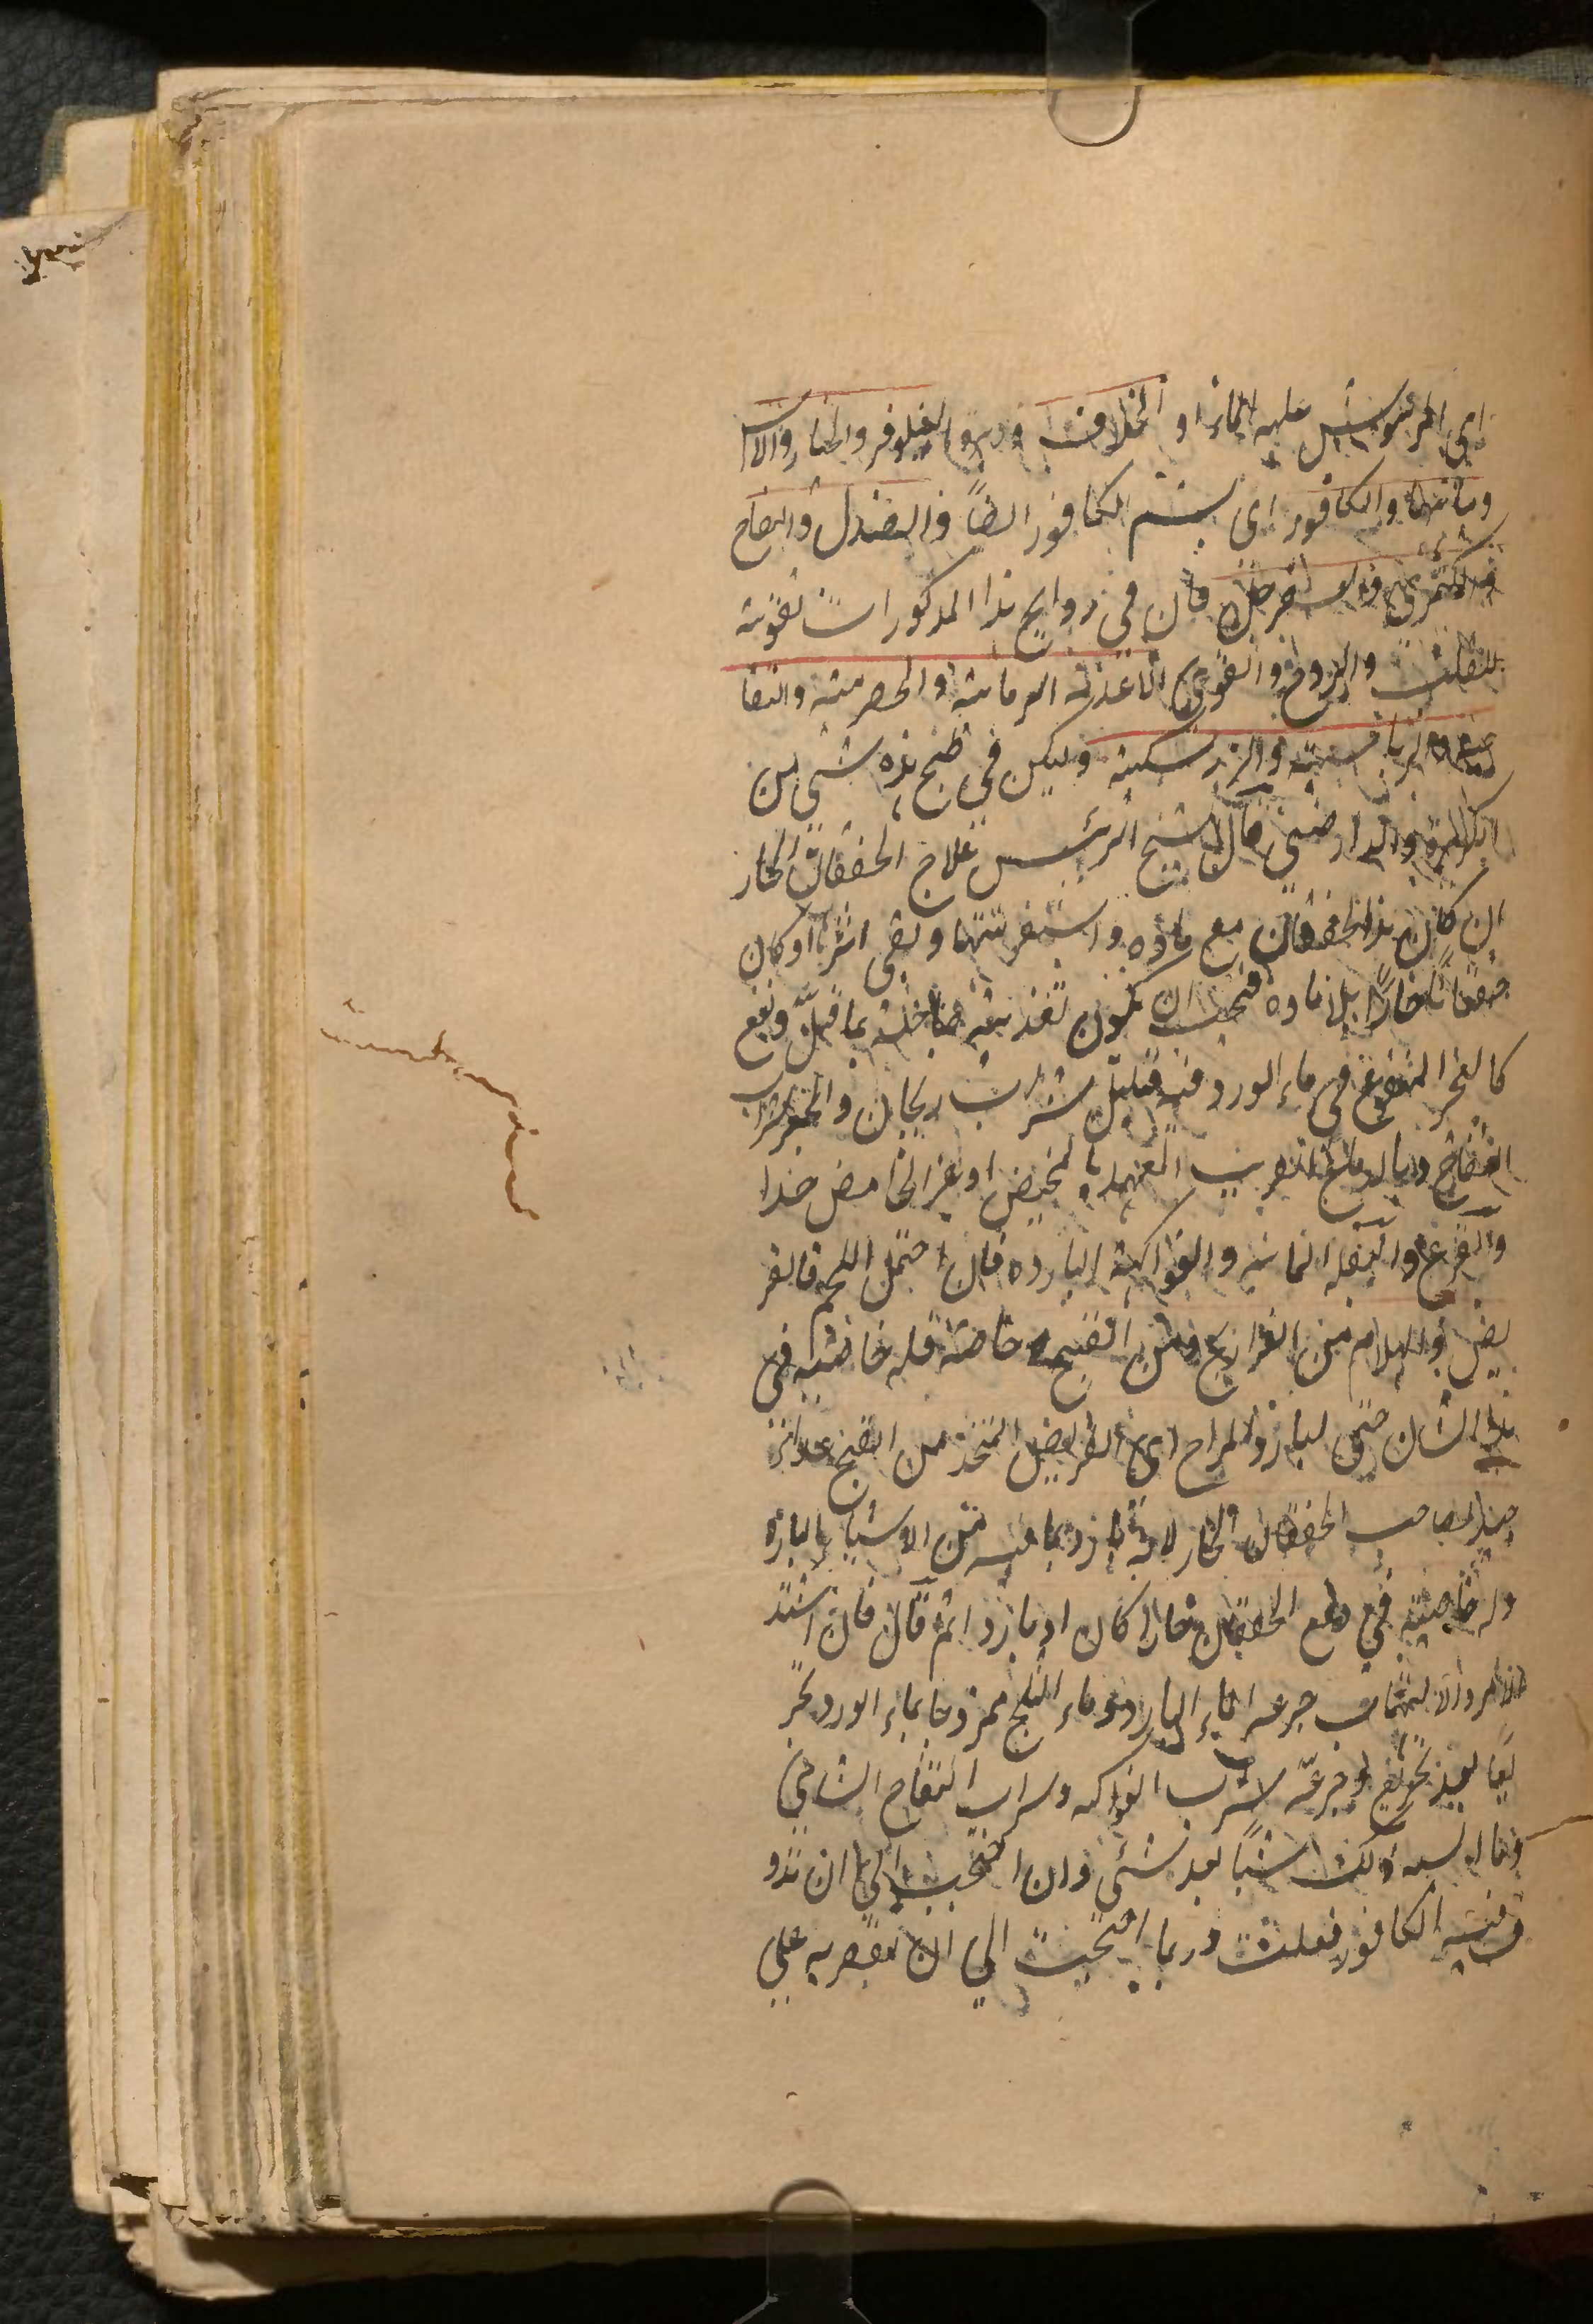 اى المرشوش عليه الماء او الخلاف ووردهما النيلوفر والخيار والاس
ومائها والكافور اى يشم الكافور ايضاً والصندل والتفاح
والكمثرى والسفرجل فان فى روايح هذا المذكورات تقوية
للقلب والروح والقوى الاغذية الرمانية والحصرمية والتفا
حية والزرباجية والزرشكية وليكن فى طبخ هذه شئى من
الكزبرة والدارصينى قال الشيخ الرئيس علاج الخفقان الحار
ان كان هذا الخفقان مع مادة واستفرغتها وبقى اثرها او كان
خفقاناً حاراً بلا مادة فيجب ان يكون تغذيته صاحبه بما قلّ ونفع
كالخبز المنقوع فى ماء الورد فيه قليل شراب ريحانى والخبز بشراب
التفاح وبالدوغ القريب العهد بالمخيض او غير الحامض جدا
والقرع والبقلة اليمانية والفواكه الباردة فان احتمل اللحم فالقر
يض والهلام من الفراريج ومن القبج خاصة فله خاصية فى
هذا الشان حتى لبارد المزاج اى القريض المتخذ من القبج غذا
جيد لصاحب الخفقان الحار لانه بارد بما فيه من الاشياء البارده
وله خاصية فى دفع الخفقان حارا كان او باردا ثم قال فان اشتد
الامر والالتهاب جرعه الماء البارد وماء الثلج ممزوجا بماء الورد تجر
يعا بعد تجريع وجرعه شراب الفواكه وشراب التفاح الشامى
وما اشبه ذلك شيئاً بعد شئى وان احتجت الى ان تذو
ف فيه الكافور فعلت وربما احتجت الى ان تقصر به على